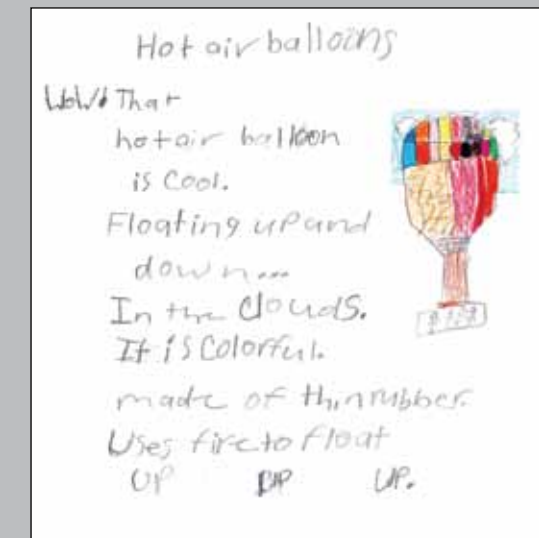 Hot air balloons
WoW! That
hot air balloon
is Cool.
Floating up and
down...
In the Clouds.
It is Colorful.
made of thin rubber.
Uses fire to float
UP UP UP.